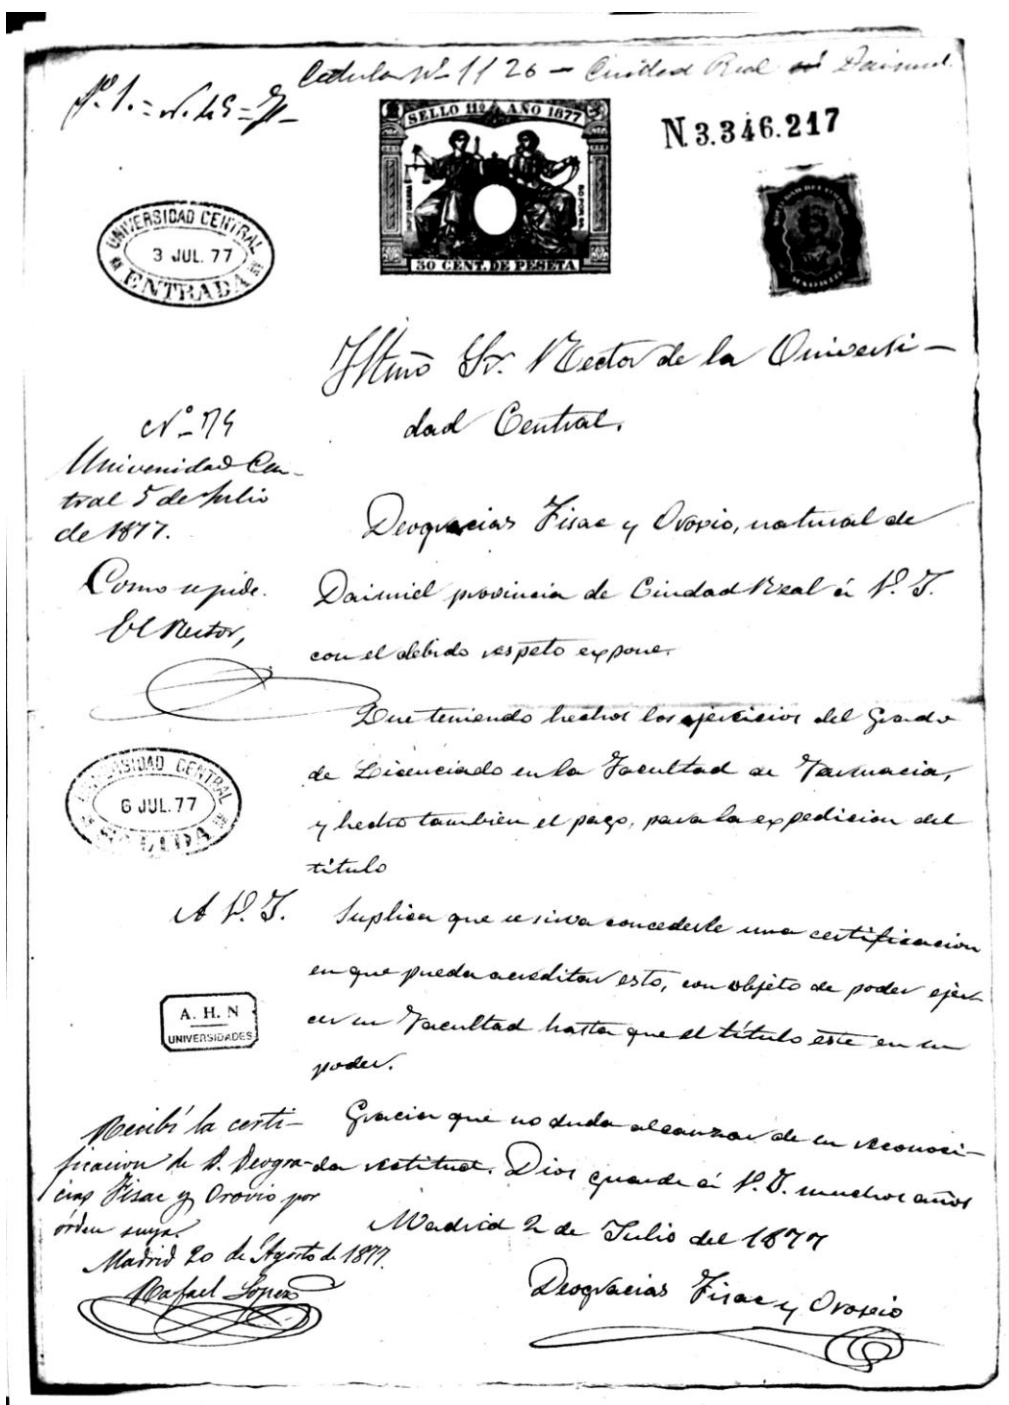 Cedula Nº 1126 — Ciudad Real Daimiel.
SELLO 11º AÑO 1877
50 CENT. DE PESETA
N. 3.346.217
UNIVERSIDAD CENTRAL
3 JUL. 77
ENTRADA
Yltmo Sr. Rector de la Universi-
dad Central.
Nº 75
Universidad Cen-
tral 5 de Julio
de 1877.
Como se pide.
El Rector,
Deogracias Fisac y Orovio, natural de
Daimiel provincia de Ciudad Real á V. I.
con el debido respeto expone.
Que teniendo hechos los ejercicios del Grado
de Licenciado en la Facultad de Farmacia,
y hecho tambien el pago, para la expedicion del
título
UNIVERSIDAD CENTRAL
6 JUL. 77
SALIDA
A V. I. Suplica que se sirva concederle una certificacion
en que pueda acreditar esto, con objeto de poder ejer-
cer su Facultad hasta que el título esté en su
poder.
A. H. N
UNIVERSIDADES
Gracia que no duda alcanzar de su reconoci-
da rectitud. Dios guarde á V. I. muchos años
Madrid 2 de Julio del 1877
Deogracias Fisac y Orovio
Recibí la certi-
ficacion de D. Deogra-
cias Fisac y Orovio por
órden suya.
Madrid 20 de Agosto de 1877.
Rafael Lopez